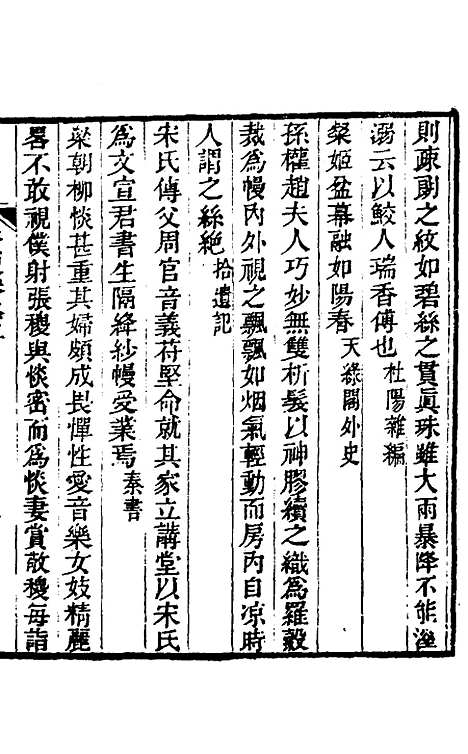 則疎朗之紋如碧絲之貫眞珠雖大雨暴降不能溼
溺云以鮫人瑞香傅也杜陽雜編
榮姬盆幕融如陽春天綠閣外史
孫權趙夫人巧妙無雙析髮以神膠續之織爲羅縠
裁爲幔內外視之飄飄如烟氣輕動而房內自凉時
人謂之絲絶拾遺記
宋氏傳父周官音義苻堅命就其家立講堂以宋氏
爲文宣君書生隔絳紗幔受業焉秦書
梁朝柳惔甚重其婦頗成畏憚性愛音樂女妓精麗
畧不敢視僕射張稷與惔密而爲惔妻賞敬稷每詣